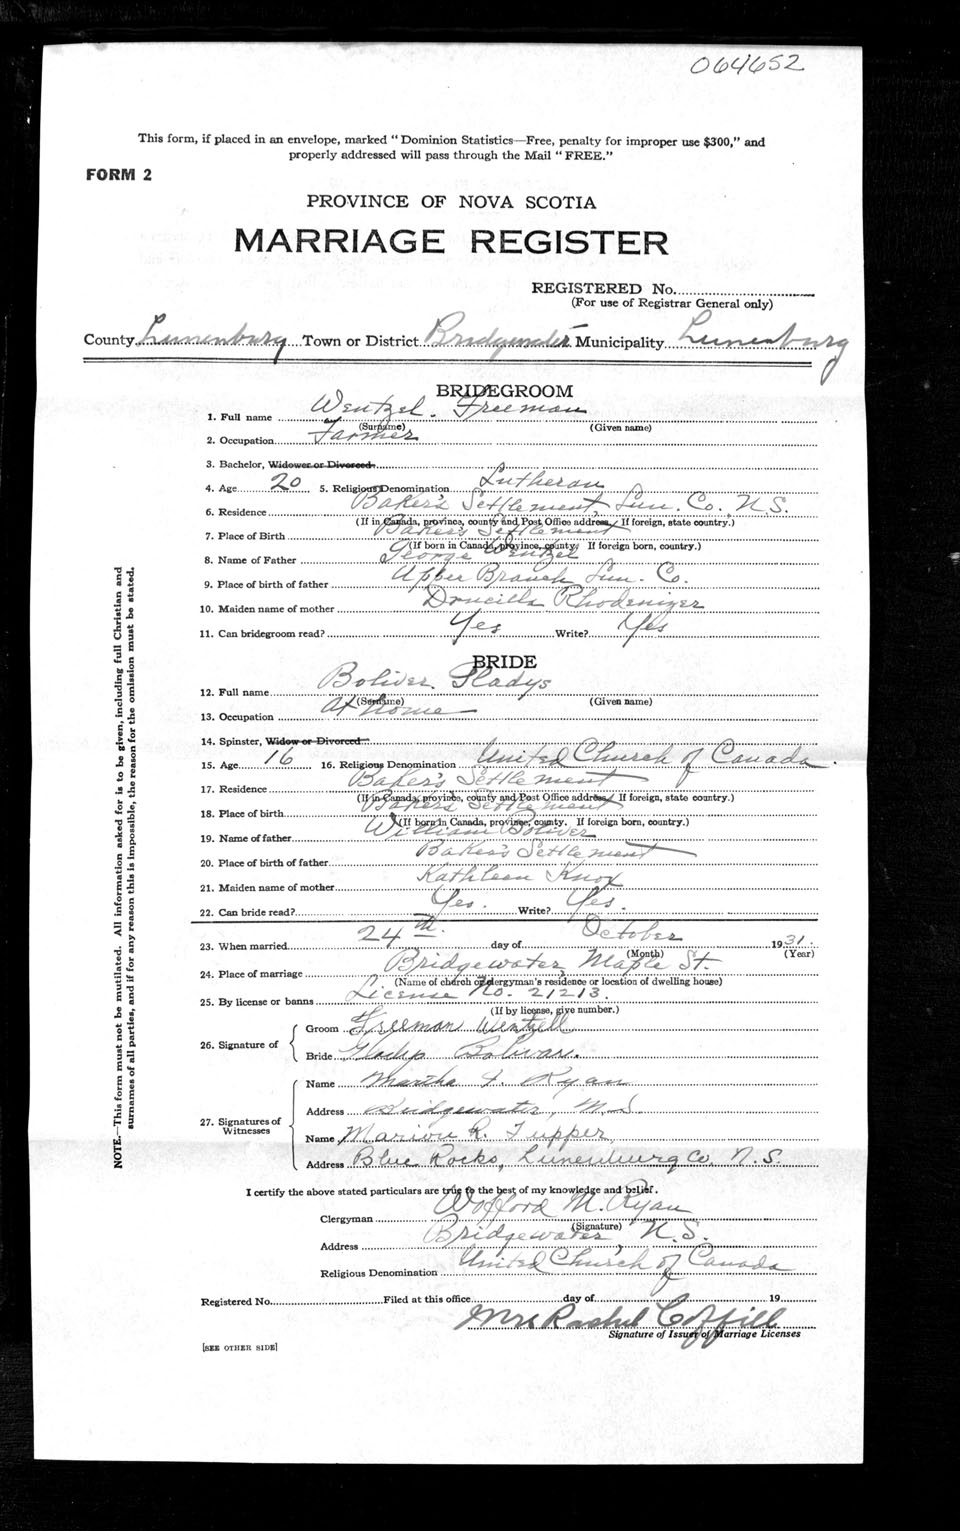 064652
This form, if placed in an envelope, marked "Dominion Statistics—Free, penalty for improper use $300," and
properly addressed will pass through the Mail "FREE."
FORM 2
PROVINCE OF NOVA SCOTIA
MARRIAGE REGISTER
REGISTERED No.
(For use of Registrar General only)
County Lunenburg Town or District Bridgewater Municipality Lunenburg
BRIDEGROOM
1. Full name Wentzel. Freeman
(Surname) (Given name)
2. Occupation Farmer
3. Bachelor, Widower or Divorced
4. Age 20 5. Religious Denomination Lutheran
6. Residence Baker's Settlement, Lun. Co., N.S.
(If in Canada, province, county and Post Office address. If foreign, state country.)
7. Place of Birth Baker's Settlement
(If born in Canada, province, county. If foreign born, country.)
8. Name of Father George Wentzel
9. Place of birth of father Upper Branch Lun. Co.
10. Maiden name of mother Drucilla Rhodenizer
11. Can bridegroom read? Yes Write? Yes
BRIDE
12. Full name Boliver. Gladys
(Surname) (Given name)
13. Occupation At home
14. Spinster, Widow or Divorced
15. Age 16 16. Religious Denomination United Church of Canada.
17. Residence Baker's Settlement
(If in Canada, province, county and Post Office address. If foreign, state country.)
18. Place of birth Baker's Settlement
(If born in Canada, province, county. If foreign born, country.)
19. Name of father William Boliver
20. Place of birth of father Baker's Settlement
21. Maiden name of mother Kathleen Knox
22. Can bride read? Yes. Write? Yes.
23. When married 24th. day of October 1931.
(Month) (Year)
24. Place of marriage Bridgewater, Maple St.
(Name of church or clergyman's residence or location of dwelling house)
25. By license or banns License No. 21213.
(If by license, give number.)
26. Signature of
Groom Freeman Wentzell
Bride Gladys Bolivar.
27. Signatures of Witnesses
Name Martha F. Ryan
Address Bridgewater, N.S.
Name Marion R. Tupper
Address Blue Rocks, Lunenburg Co, N.S.
I certify the above stated particulars are true to the best of my knowledge and belief.
Clergyman Wofford M. Ryan
(Signature)
Address Bridgewater, N.S.
Religious Denomination United Church of Canada
Registered No. Filed at this office day of 19
Mrs Rachel Coffill
Signature of Issuer of Marriage Licenses
[SEE OTHER SIDE]
NOTE.—This form must not be mutilated. All information asked for is to be given, including full Christian and
surnames of all parties, and if for any reason this is impossible, the reason for the omission must be stated.